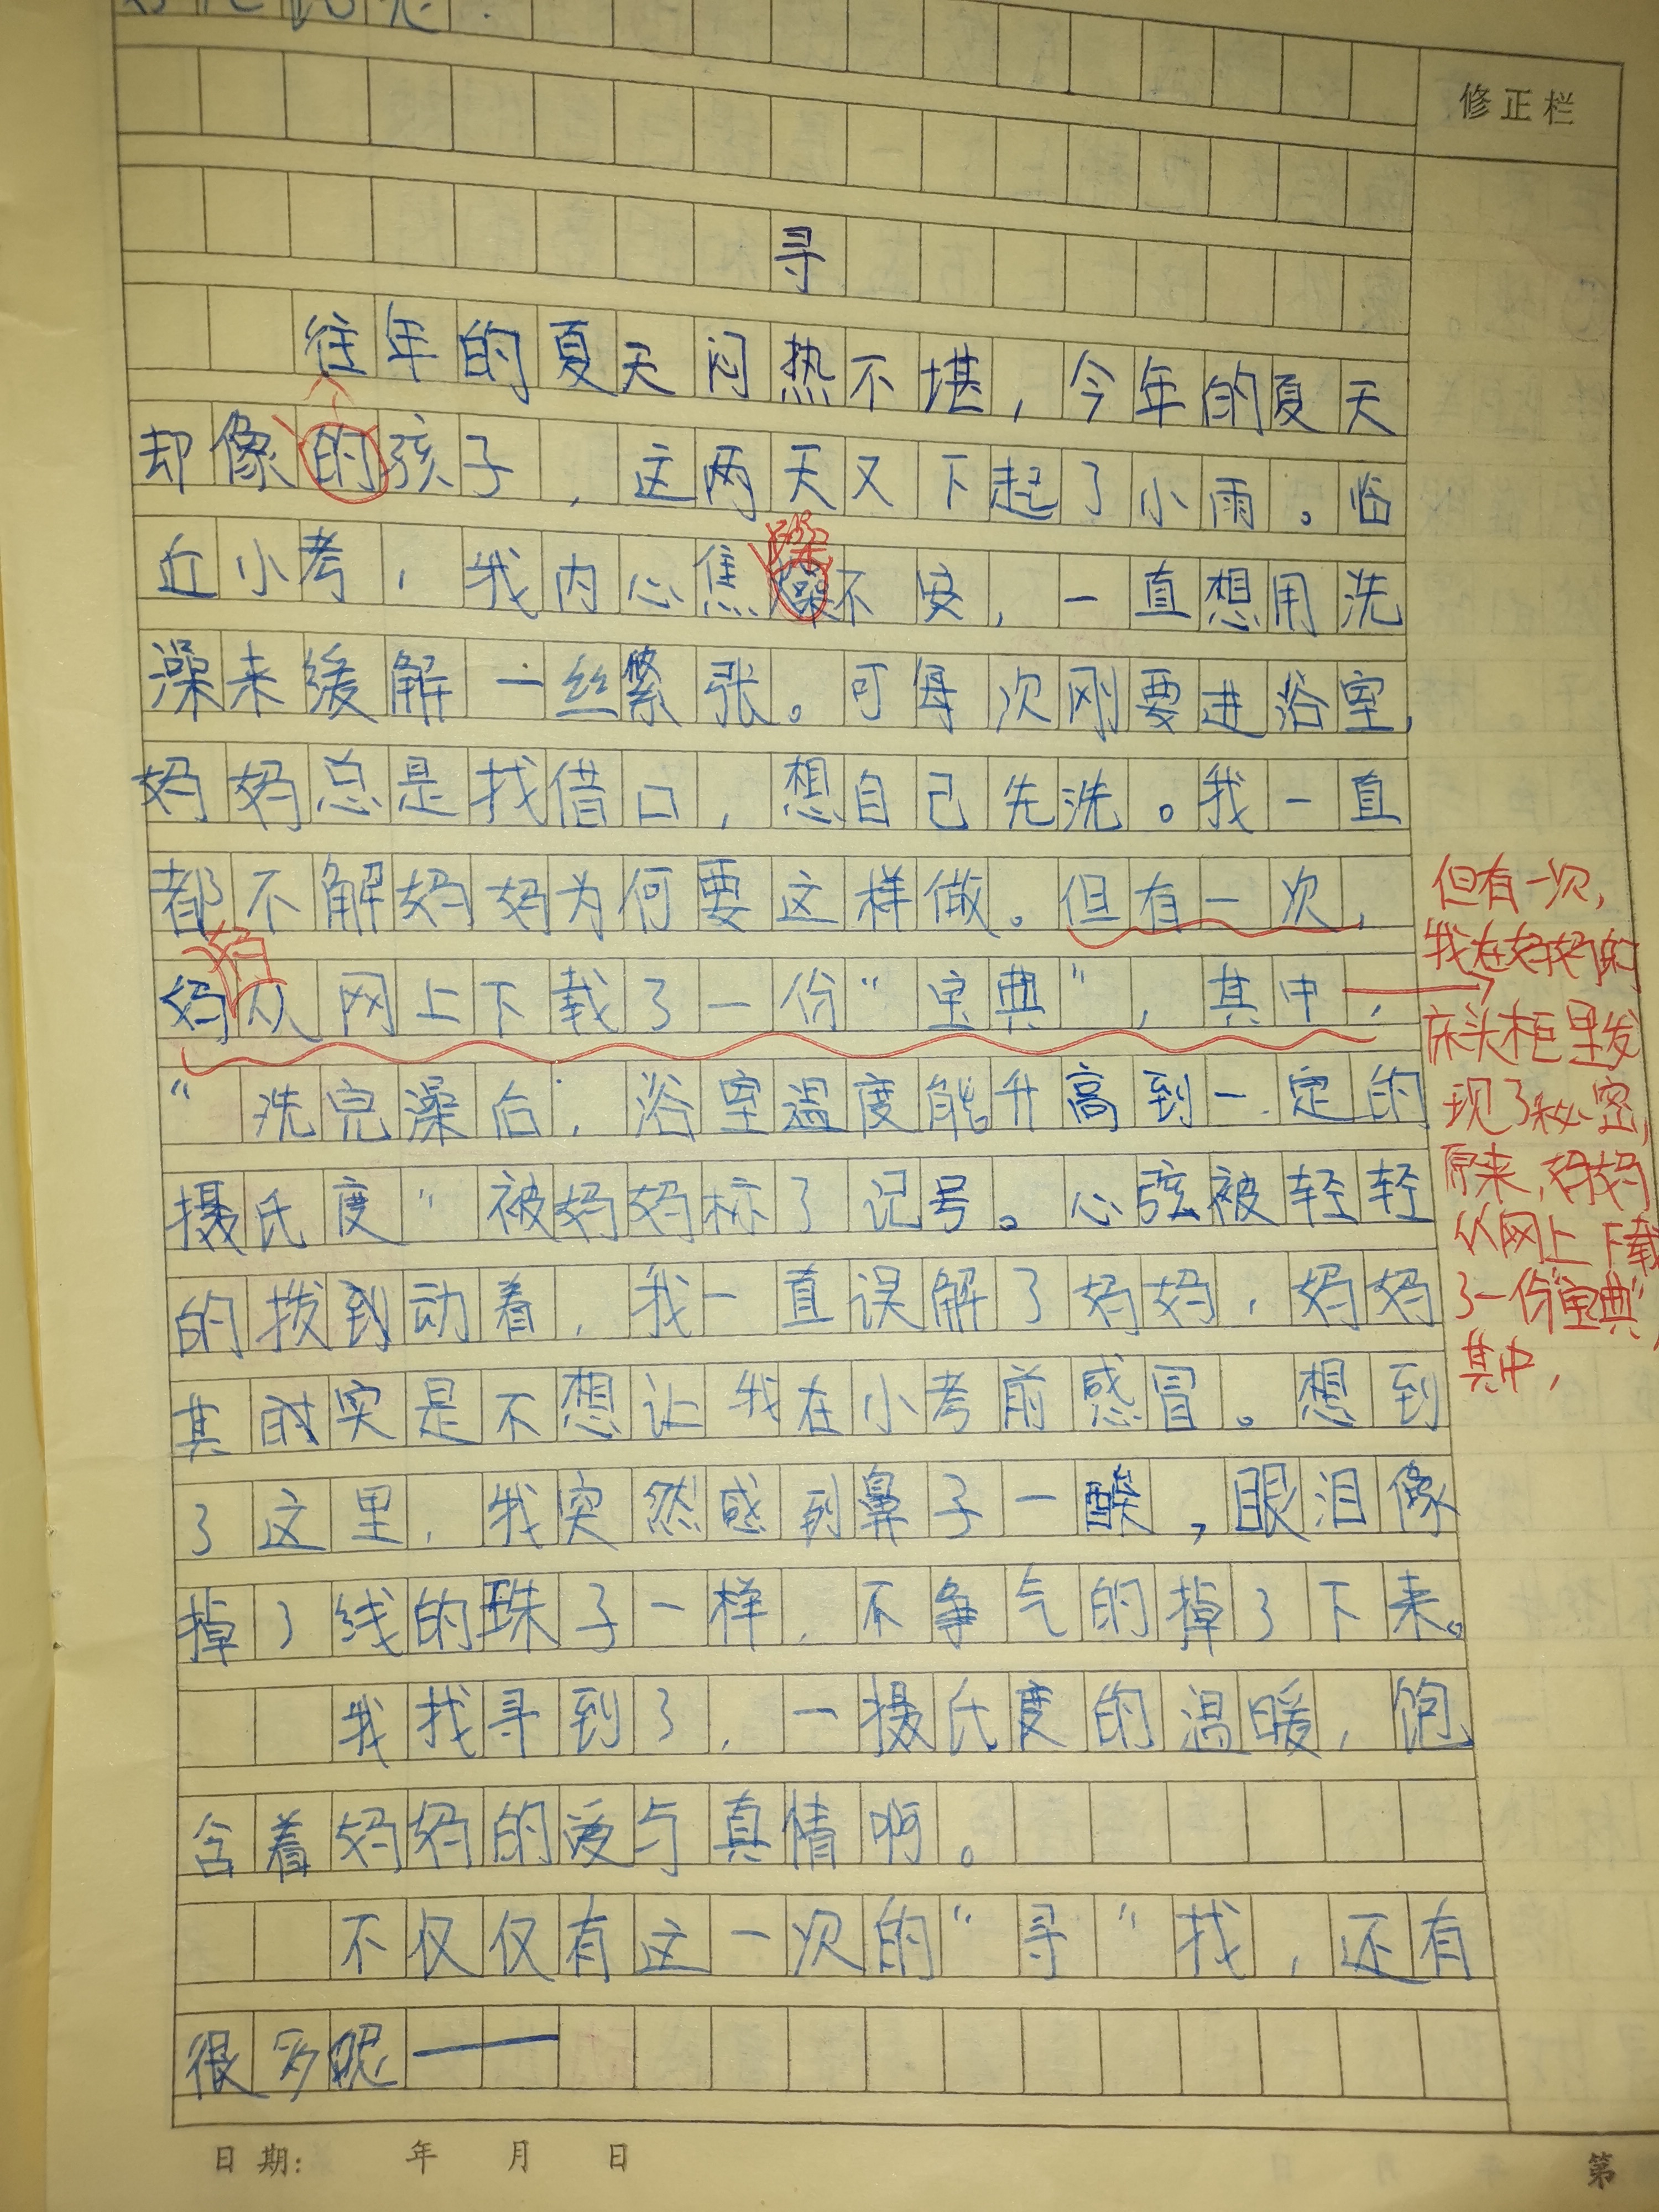 修正栏
寻
往年的夏天闷热不堪，今年的夏天
却像的孩子，这两天又下起了小雨。临
近小考，我内心焦澡不安，一直想用洗
躁
澡来缓解一丝紧张。可每次刚要进浴室，
妈妈总是找借口，想自己先洗。我一直
都不解妈妈为何要这样做。但有一次，
妈从网上下载了一份“宝典”，其中，
妈
“洗完澡后，浴室温度能升高到一定的
摄氏度”被妈妈标了记号。心弦被轻轻
的拨到动着，我一直误解了妈妈，妈妈
其时实是不想让我在小考前感冒。想到
了这里，我突然感到鼻子一酸，眼泪像
掉了线的珠子一样，不争气的掉了下来。
我找寻到了，一摄氏度的温暖，饱
含着妈妈的爱与真情啊。
不仅仅有这一次的“寻”找，还有
很多呢——
但有一次，
我在妈妈的
床头柜里发
现了秘密，
原来，妈妈
从网上下载
了一份“宝典”，
其中，
日期： 年 月 日
第